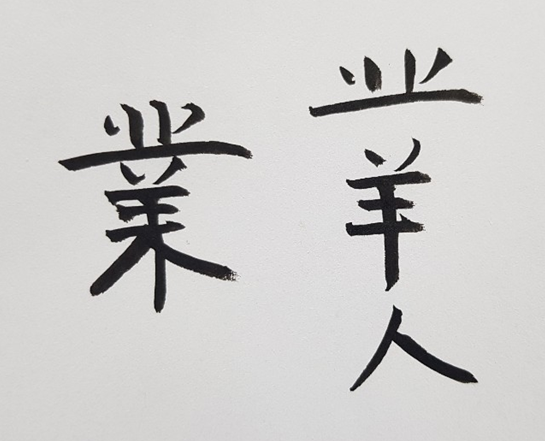 業
业
羊
人